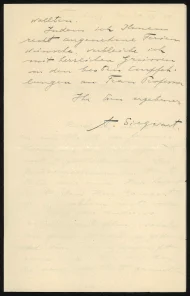 wollten.
Indem ich Ihnen
recht angenehme Ferien
wünsche, verbleibe ich
mit herzlichen Grüssen
und den besten Empfeh-
lungen an Frau Professor
Ihr Ihnen ergebener
A.